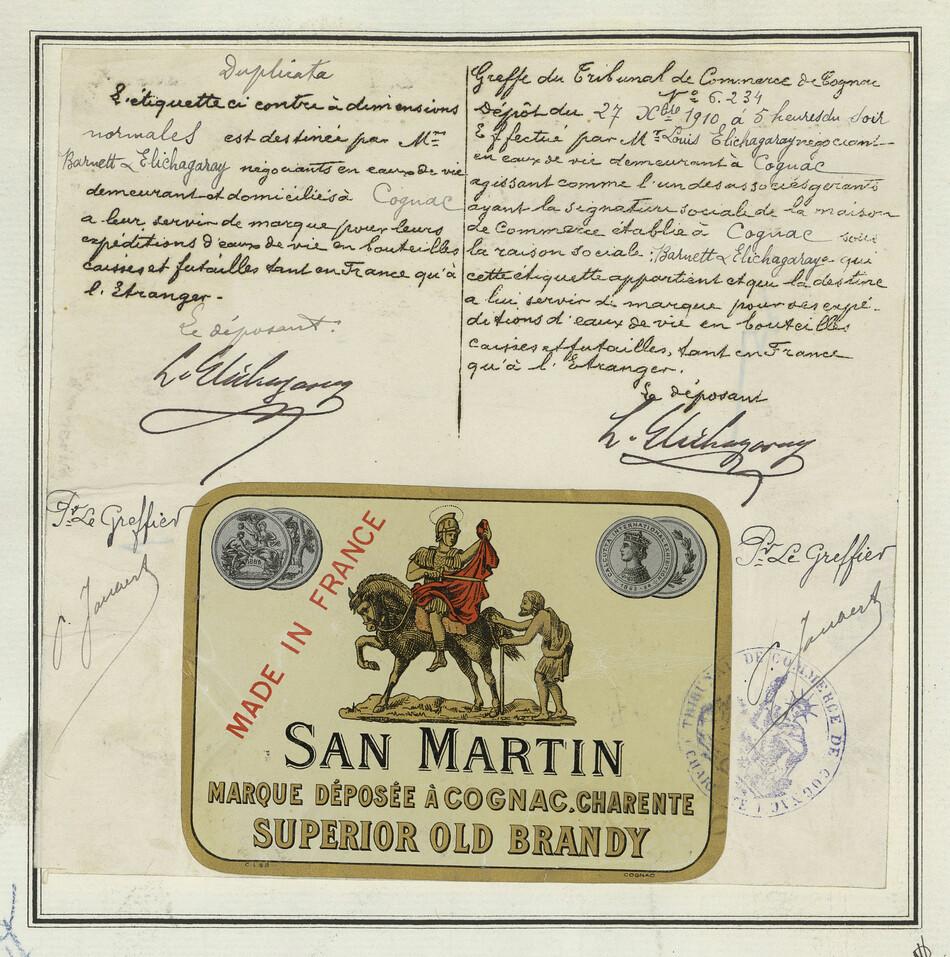 Duplicata
L'étiquette ci contre à dimensions
normales est destinée par Mrs
Barnett & Elichagaray négociants en eaux de vie
demeurant et domiciliés à Cognac
a leur servir de marque pour leurs
expéditions d'eaux de vie en bouteilles
caisses et futailles tant en France qu'à
l'Etranger -
Le déposant.
L. Elichagaray
Greffe du Tribunal de Commerce de Cognac
No 6.234
Dépôt du 27 Xbre 1910 à 5 heures du soir
Effectué par Mr Louis Elichagaray négociant
en eaux de vie demeurant à Cognac
agissant comme l'un des associés gérants
ayant la signature sociale de la maison
de Commerce établie à Cognac sous
la raison sociale : Barnett & Elichagaray qui
cette étiquette appartient et qui la destine
a lui servir de marque pour ses expé-
ditions d'eaux de vie en bouteilles
caisses et futailles, tant en France
qu'à l'Etranger.
Le déposant
L. Elichagaray
Pr Le Greffier
Pr Le Greffier
MADE IN FRANCE
CALCUTTA INTERNATIONAL EXHIBITION
1883-84
SAN MARTIN
MARQUE DÉPOSÉE À COGNAC.CHARENTE
SUPERIOR OLD BRANDY
COGNAC
TRIBUNAL DE COMMERCE DE COGNAC